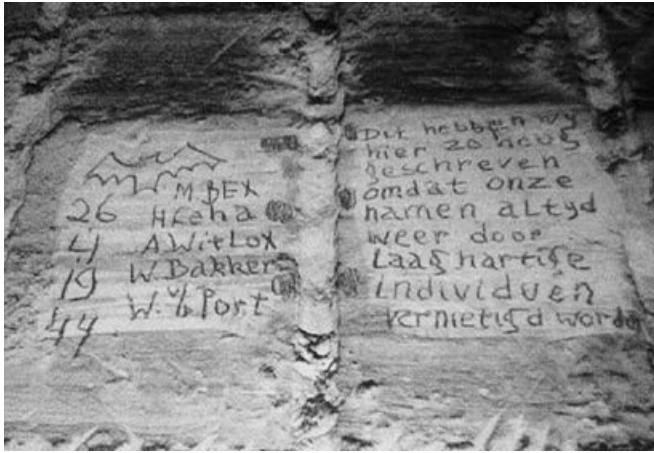 M BEX
26 H Ceha
4 A WitLox
19 W. Bakkers
44 W. v/d Port
Dit hebben wy
hier zo hoog
geschreven
omdat onze
namen aLtyd
weer door
Laaghartige
individuen
vernietigd worde